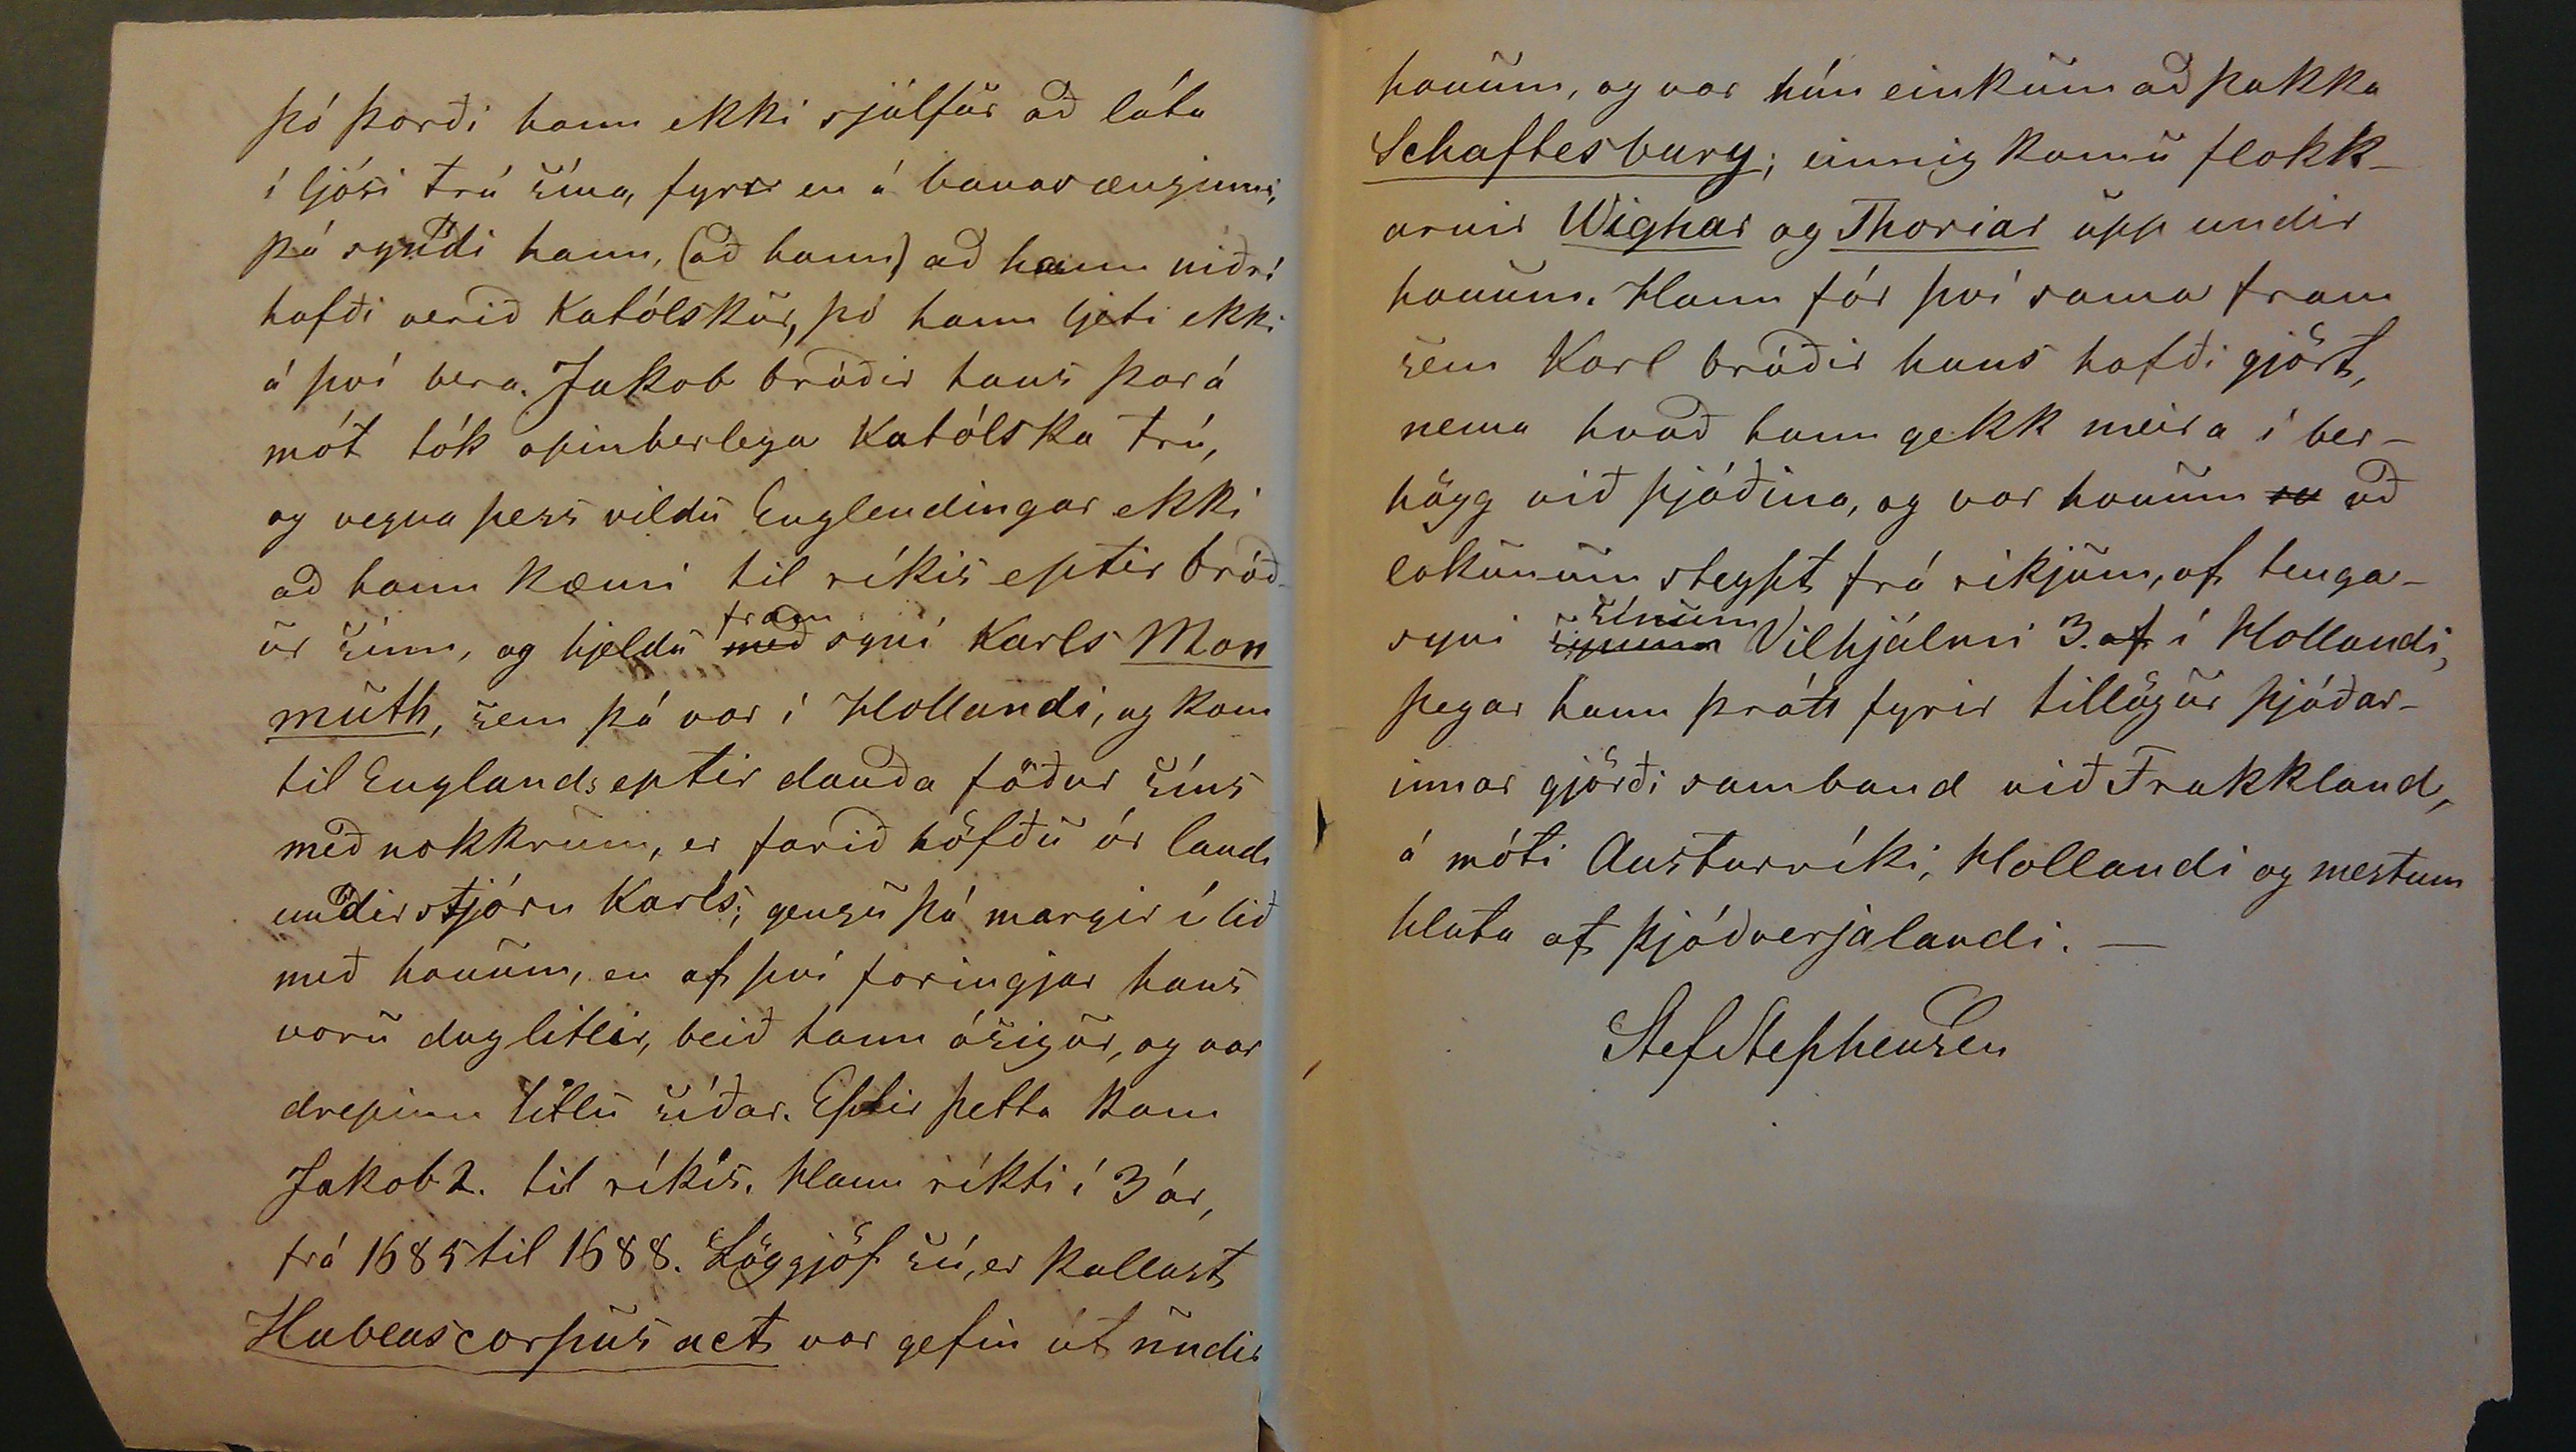 þó þorði hann ekki sjálfur að láta
í ljósi trú sína, fyrr en á banasænginni,
þá sýndi hann, (að hann) að hann
hafði verið Katólskur, þó hann ljeti ekki
á því bera. Jakob bróðir hans þar á
mót tók opinberlega Katólska trú,
og vegna þess vildu Englendingar ekki
að hann kæmi til ríkis eptir bróð-
ur sinn, og hjeldu með fram syni Karls Mon
muth, sem þá var í Hollandi, og kom
til Englands eptir dauða föður síns
með nokkrum, er farið höfðu úr landi
undir stjórn Karls; gengu þá margir í lið
með honum, en af því foringjar hans
voru duglitlir, beið hann ósigur, og var
drepinn litlu síðar. Eptir þetta kom
Jakob 2. til ríkis. Hann ríkti í 3 ár,
frá 1685 til 1688. Löggjöf sú, er kallast
Habeascorpus act var gefin út undir
honum, og var hún einkum að þakka
Schaftesbury; einnig komu flokk-
arnir Wighar og Thoriar upp undir
honum. Hann fór því sama fram
sem Karl bróðir hans hafði gjört,
nema hvað hann gekk meira í ber-
högg við þjóðina, og var honum sv að
lokunum steypt frá ríkjum, af tenga-
syni sínum Vilhjálmi 3. af í Hollandi,
þegar hann þrátt fyrir tillögur þjóðar-
innar gjörði samband við Frakkland,
á móti Austurríki, Hollandi og mestum
hluta af Þjóðverjalandi. —
Stef Stephensen